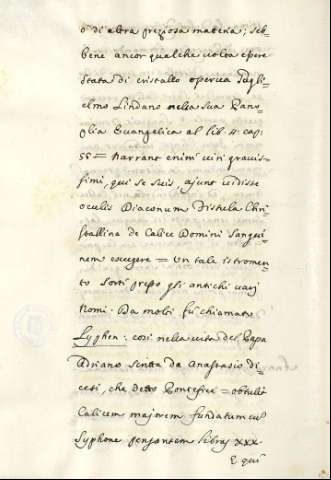 o di altra preziosa materia; seb=
bene ancor qualche volta essere
stata di cristallo osserva Gugli=
elmo Lindano nella sua Pano=
plia Evangelica al lib. 4. cap.
55 = Narrant enim viri gravis=
simi, qui se suis, ajunt vidisse
oculis Diaconum Fistula Chri=
stallina de Calice Domini Sangui=
nem exugere = Un tale istromen=
to sortì presso gli antichi varj
Nomi. Da molti fu chiamato
Syphon: così nella vita del Papa
Adriano scritta da Anastasio di=
cesi, che detto Pontefice = obtulit
Calicem majorem fundatum cu
Syphone pensantem libras XXX.
E qui